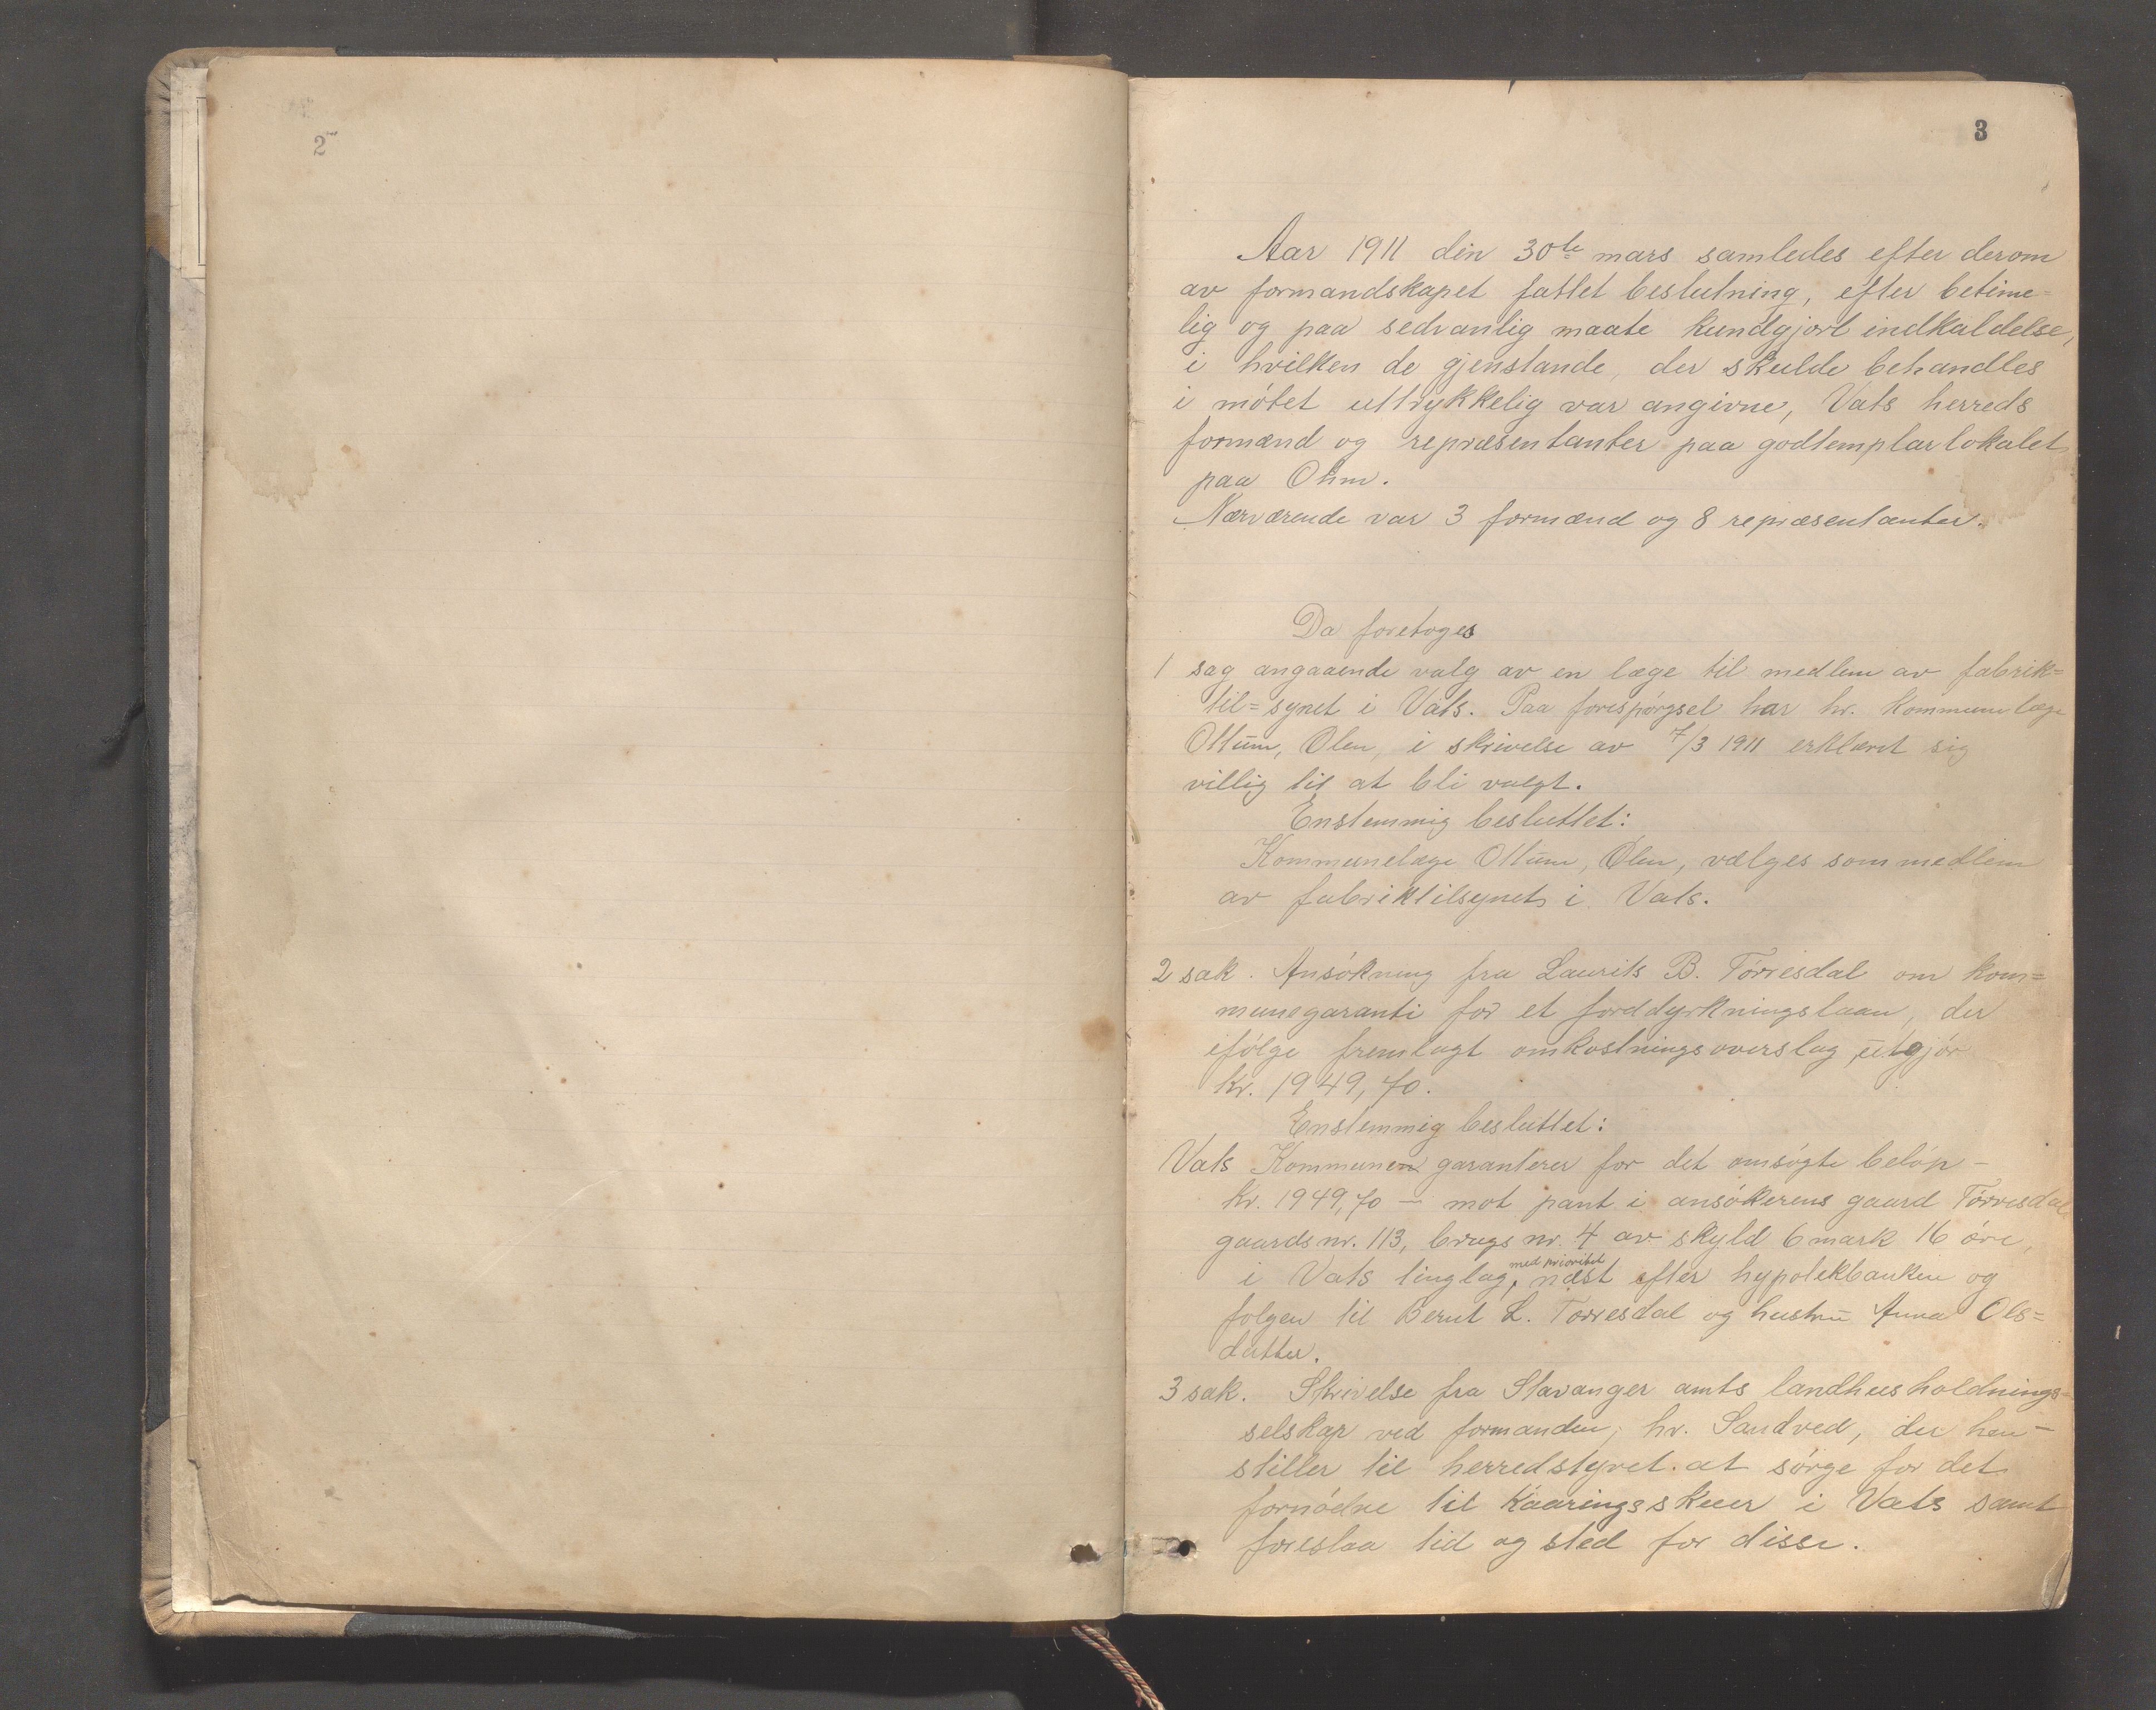 2
3
Aar 1911 den 30te mars samledes efter derom
av formandskapet fattet beslutning, efter betime=
lig og paa sedvanlig maate kundgjort indkaldelse,
i hvilken de gjenstande, der skulde behandles
i møtet uttrykkelig var angivne, Vats herreds
formænd og repræsentanter paa godtemplarlokalet
paa Ohm.
Nærværende var 3 formænd og 8 repræsentanter.
Da foretoges
1 sag angaaende valg av en læge til medlem av fabrik=
til=synet i Vats. Paa forespørgsel har hr. kommunelæge
Ottum, Ølen, i skrivelse av 7/3 1911 erklæret sig
villig til at bli valgt.
Enstemmig besluttet:
Kommunelæge Ottum, Ølen, vælges som medlem
av fabriktilsynet i Vats.
2 sak. Ansøkning fra Laurits B. Tørresdal om kom=
munegaranti for et jorddyrkningslaan, der
ifølge fremlagt omkostningsoverslag, utgjør
kr. 1949,70.
Enstemmig besluttet:
Vats Kommunen garanterer for det omsøgte beløp -
kr. 1949,70 - mot pant i ansøkerens gaard Tørresdal
gaardsnr. 113, brugsnr. 4 av skyld 6 mark 16 øre,
i Vats tinglag, med prioritet næst efter hypotekbanken og
folgen til Bernt L. Tørresdal og hustru Anna Ols=
datter.
3 sak. Skrivelse fra Stavanger amts landhusholdnings=
selskap ved formanden, hr. Sandved, der hen-
stiller til herredstyret at sørge for det
fornødne til kaaringsskuer i Vats samt
foreslaa tid og sted for disse.